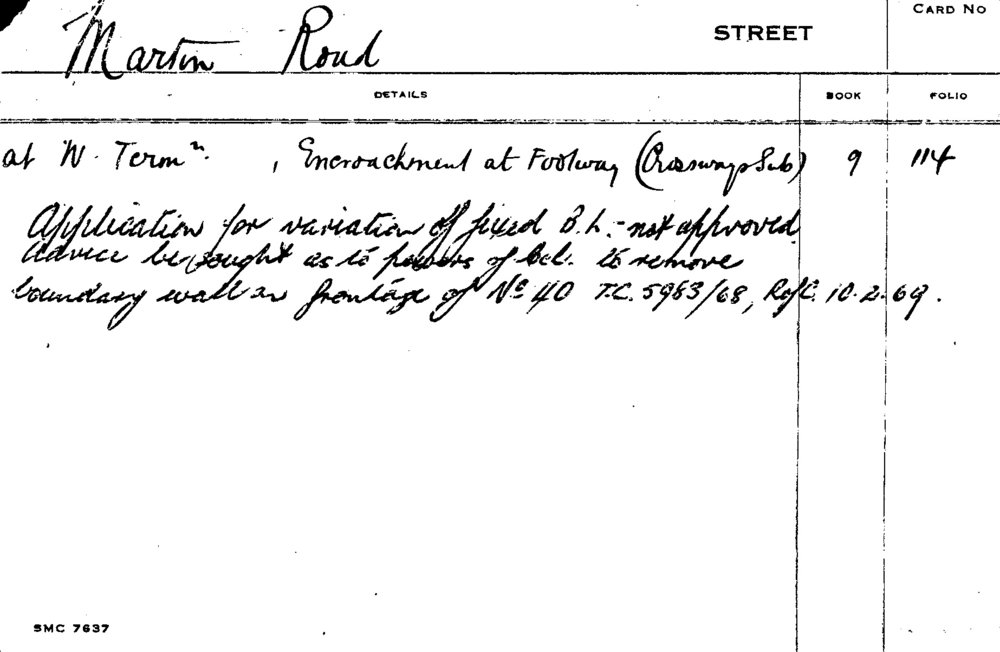 CARD NO
Martin Road STREET
DETAILS BOOK FOLIO
at W. Termn. , Encroachment at Footway (Crossways Sub) 9 114
Application for variation of fixed B.L. - not approved
Advice be sought as to powers of Ccl. to remove
boundary wall on frontage of No 40 T.C. 5983/68, R of C. 10.2.69.
SMC 7637